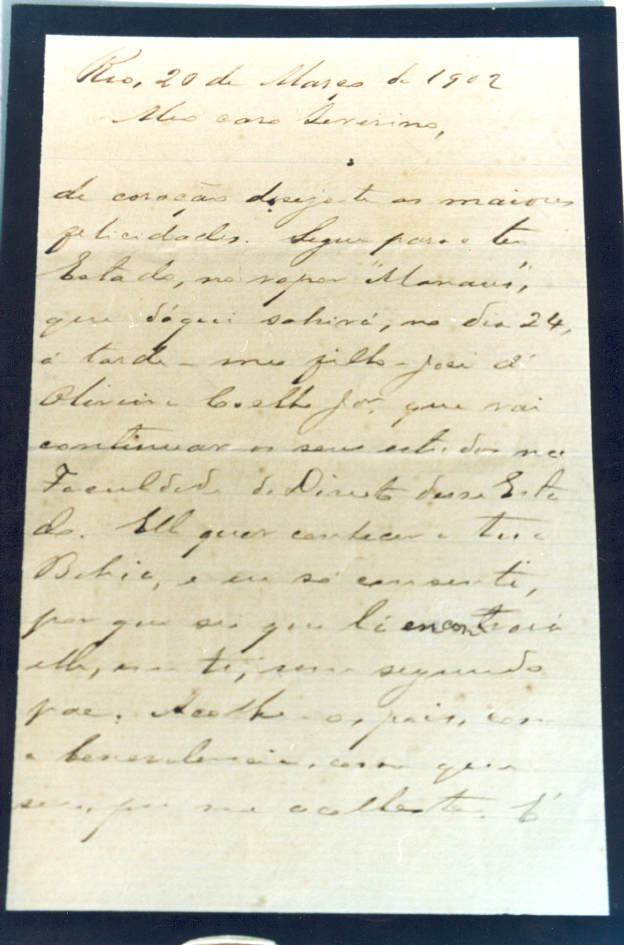 Rio, 20 de Março de 1902
Meo caro Severino,
de coração desejo-te as maiores
felicidades. Segue para o teu
Estado, no vapor "Manaus",
que d'aqui sahirá, no dia 24,
á tarde - meu filho - José d'
Oliveira Coelho Jor. que vai
continuar os seus estudos na
Faculdade de Direito desse Esta
do. Elle quer conhecer a tua
Bahia, e eu só consenti,
por que sei que lá encontrará
elle, em ti, um segundo
pae. Acolhe-o, pois, com
a benevolencia, com que
sempre me acolheste. É